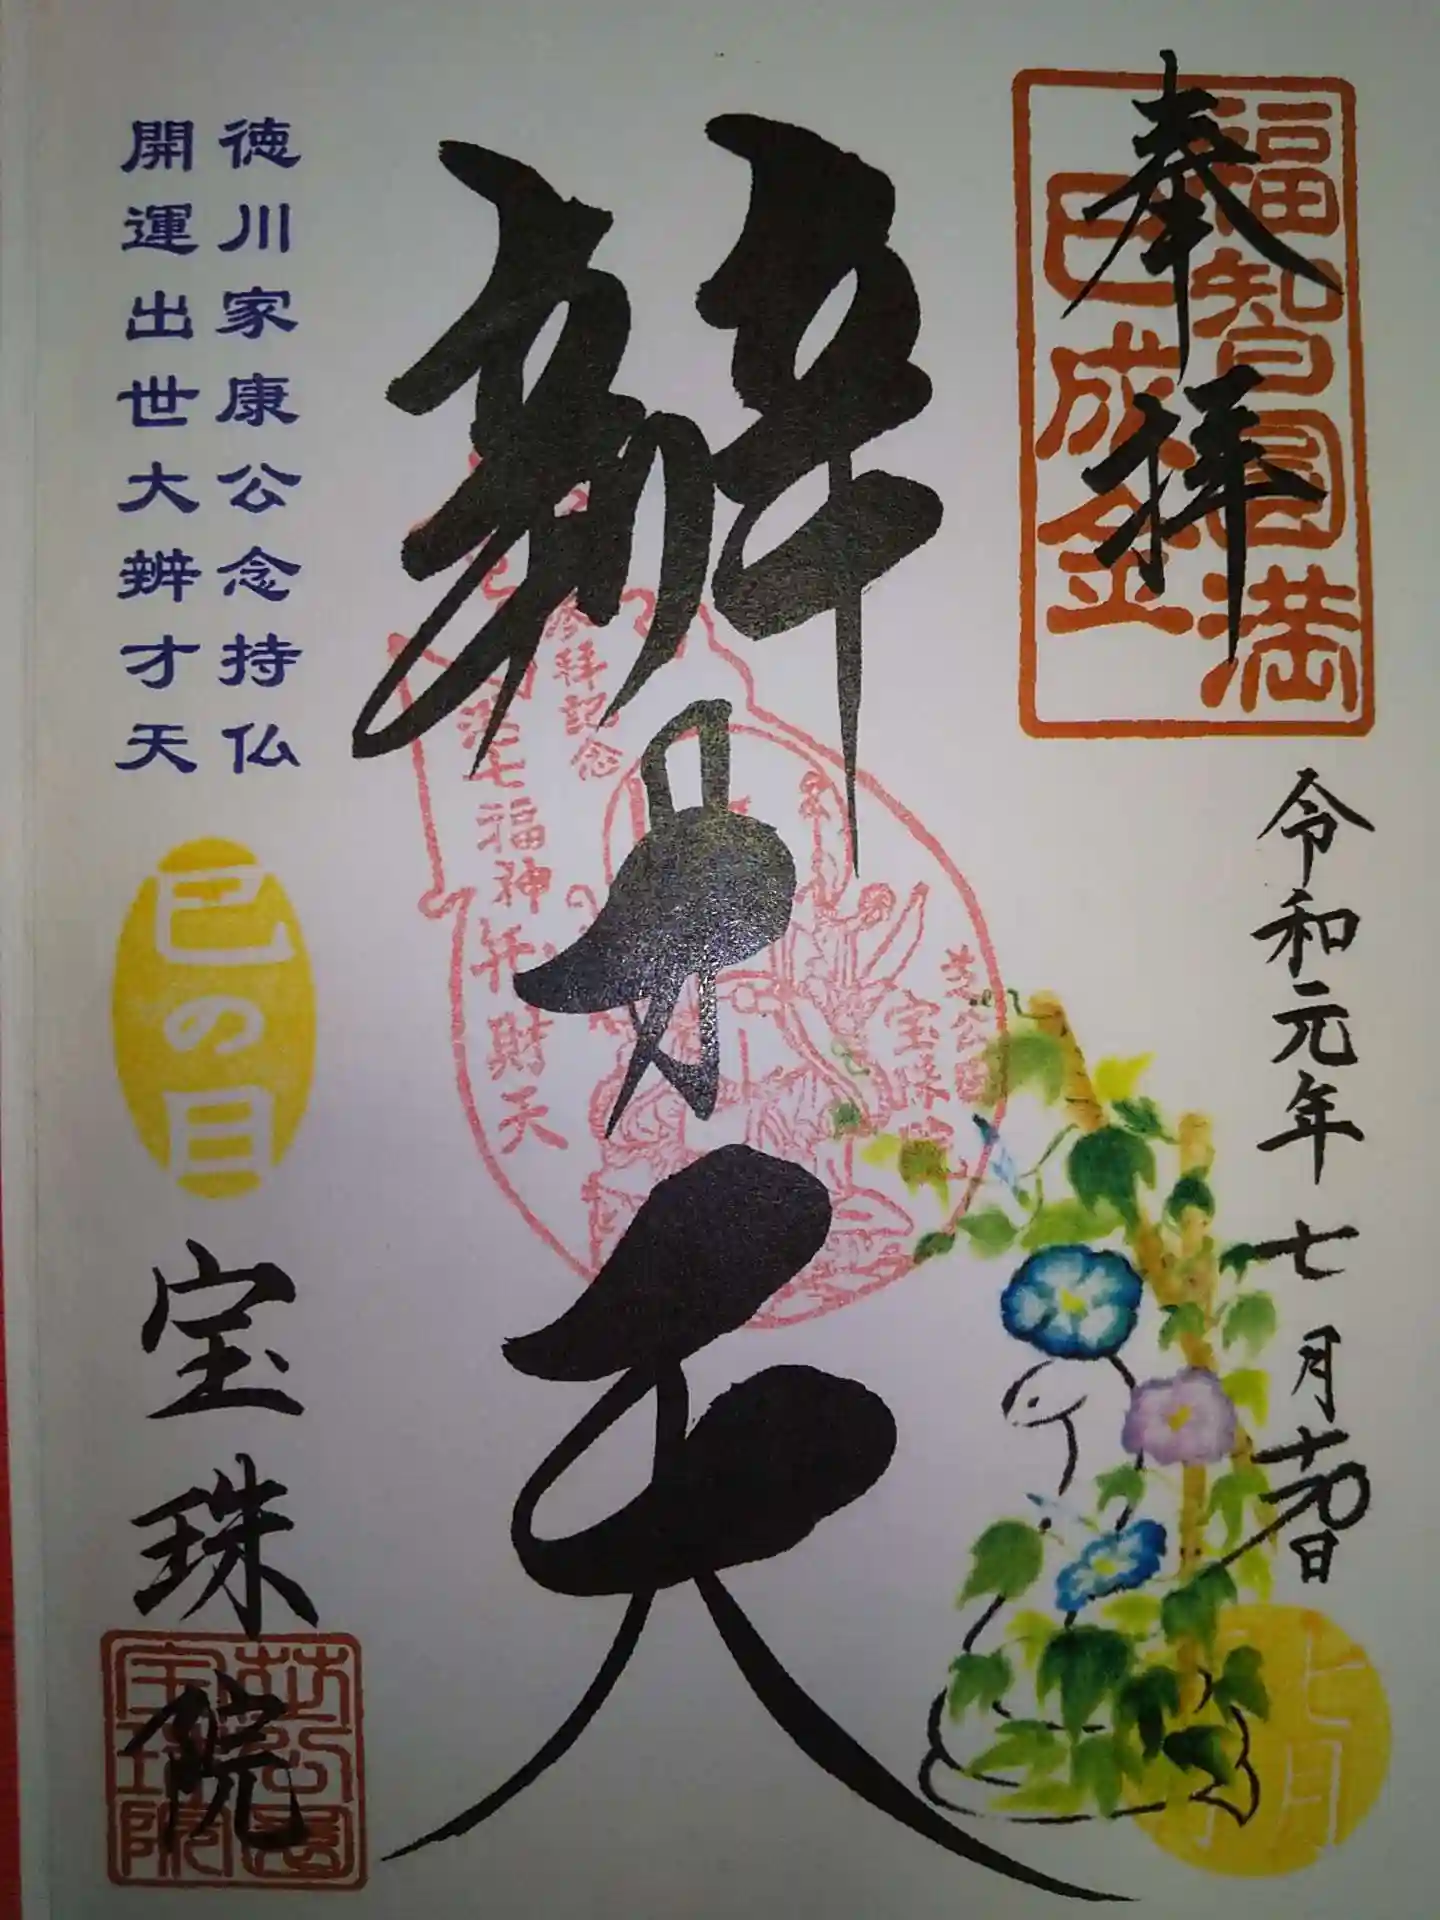 福智圓満
巳成金
奉拝
令和元年 七月十九日
七月
辨才天
参拝記念
港七福神弁財天
芝公園
宝珠院
徳川家康公念持仏
開運出世大辨才天
巳の日
宝珠院
芝公園
宝珠院